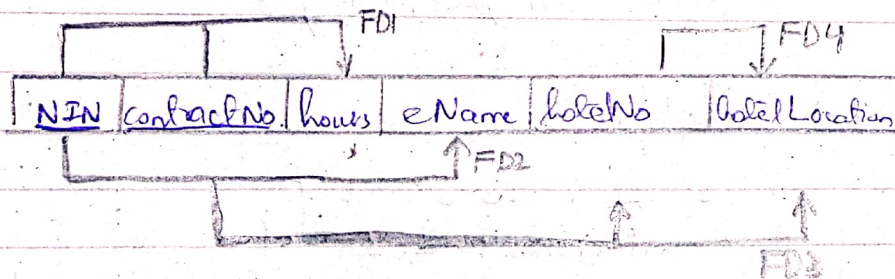 FD1
FD4
NIN contractNo. hours eName hotelNo hotelLocation
FD2
FD3